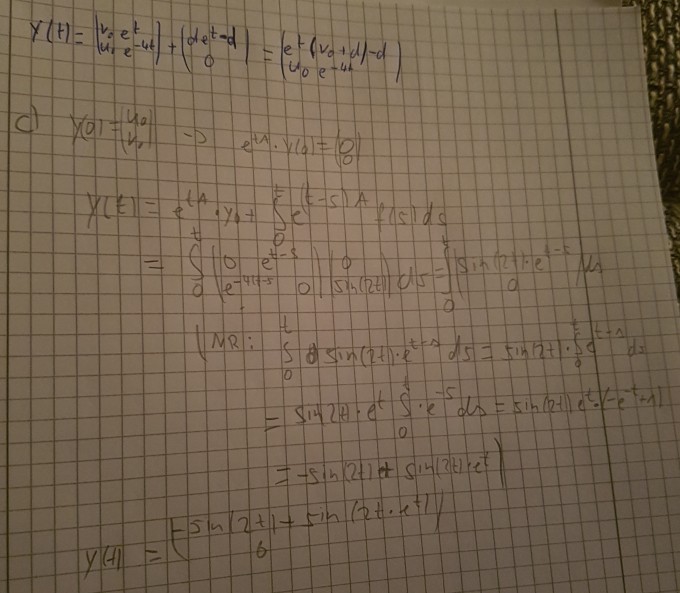 Y(t) = (v₀ e^t / u₀ e^-4t) + (d e^t - d / 0) = (e^t (v₀ + d) - d / u₀ e^-4t)
c) Y(0) = (u₀ / v₀) → e^tA · Y(0) = (0 / 0)
Y(t) = e^tA · y₀ + ∫₀^t e^(t-s)A f(s) ds
= ∫₀^t (0 e^t-s / e^-4(t-s 0) (0 / sin(2t)) ds = ∫₀^t (sin(2t) · e^t-s / 0) ds
(NR: ∫₀^t sin(2t) · e^t-s ds = sin(2t) · ∫₀^t e^t-s ds
= sin(2t) · e^t ∫₀^t · e^-s ds = sin(2t) e^t · (-e^-t + 1)
= -sin(2t) + sin(2t) · e^t)
Y(t) = (-sin(2t) + sin(2t · e^t) / 0)